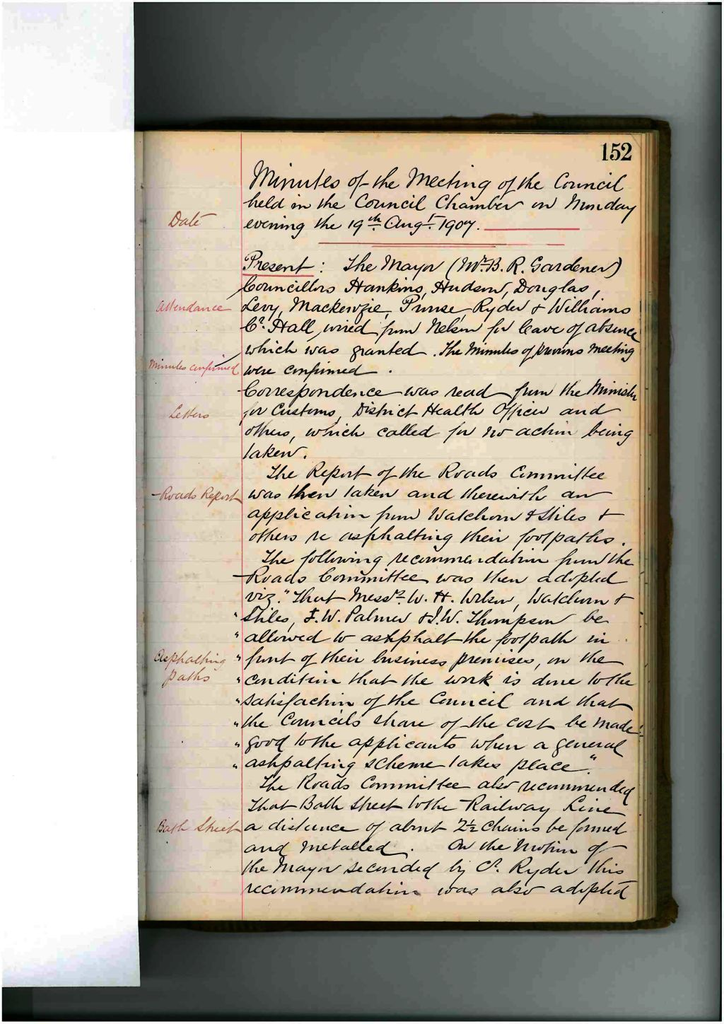 152
Minutes of the Meeting of the Council
held in the Council Chamber on Monday
Date
evening the 19th Augt. 1907.
Present: The Mayor (Mr. B. R. Gardener)
Councillors Hankins, Hudson, Douglas,
Attendance
Levy, Mackenzie, Prouse, Ryder & Williams
Cr. Hall, wired from Nelson for leave of absence
which was granted. The Minutes of previous meeting
Minutes confirmed
were confirmed.
Correspondence was read from the Minister
Letters
for Customs, District Health Officer and
others, which called for no action being
taken.
The Report of the Roads Committee
Roads Report
was then taken and therewith an
application from Watchorn & Stiles &
others re asphalting their footpaths.
The following recommendation from the
Roads Committee was then adopted
viz. "That Messrs. W. H. , Watchorn &
" Stiles, F. W. Palmer & J. W. Thompson be
" allowed to ashphalt the footpath in
Asphalting paths
" front of their business premises, on the
" condition that the work is done to the
" satisfaction of the Council and that
" the Councils share of the cost be made
" good to the applicants when a general
" ashpalting scheme takes place".
The Roads Committee also recommended
that Bath Street to the Railway Line
Bath Street
a distance of about 2½ chains be formed
and metalled. On the motion of
the Mayor seconded by Cr. Ryder this
recommendation was also adopted